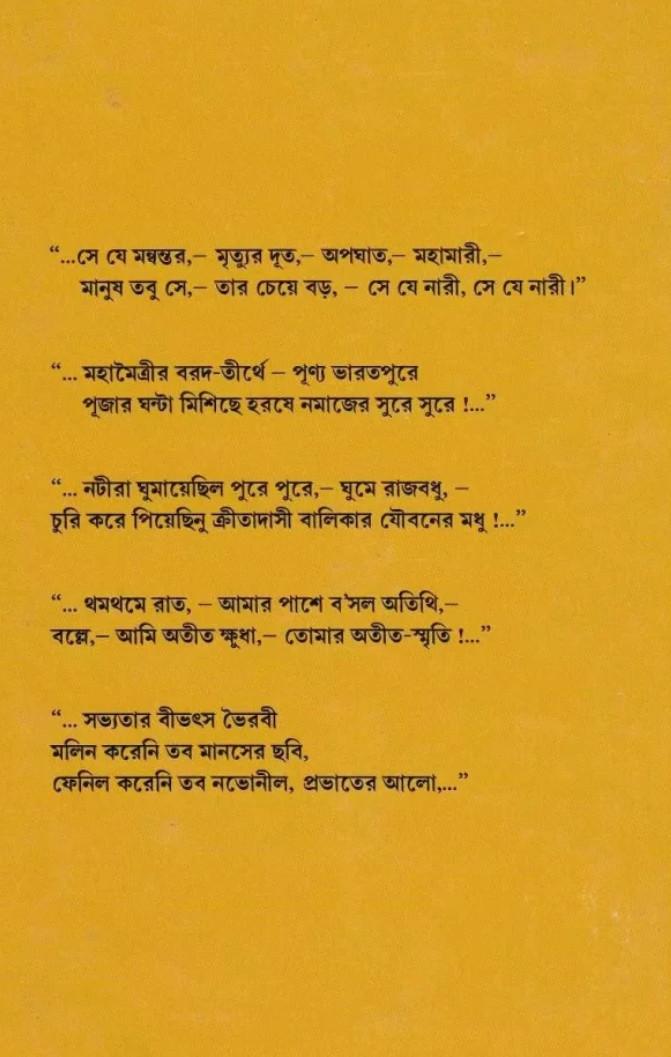 “...সে যে মন্বন্তর,– মৃত্যুর দূত,– অপঘাত,– মহামারী,–
মানুষ তবু সে,– তার চেয়ে বড়, – সে যে নারী, সে যে নারী।”
“... মহামৈত্রীর বরদ-তীর্থে – পূণ্য ভারতপুরে
পূজার ঘন্টা মিশিছে হরষে নমাজের সুরে সুরে !...”
“... নটীরা ঘুমায়েছিল পুরে পুরে,– ঘুমে রাজবধু, –
চুরি করে পিয়েছিনু ক্রীতাদাসী বালিকার যৌবনের মধু !...”
“... থমথমে রাত, – আমার পাশে ব'সল অতিথি,–
বল্লে,– আমি অতীত ক্ষুধা,– তোমার অতীত-স্মৃতি !...”
“... সভ্যতার বীভৎস ভৈরবী
মলিন করেনি তব মানসের ছবি,
ফেনিল করেনি তব নভোনীল, প্রভাতের আলো,...”